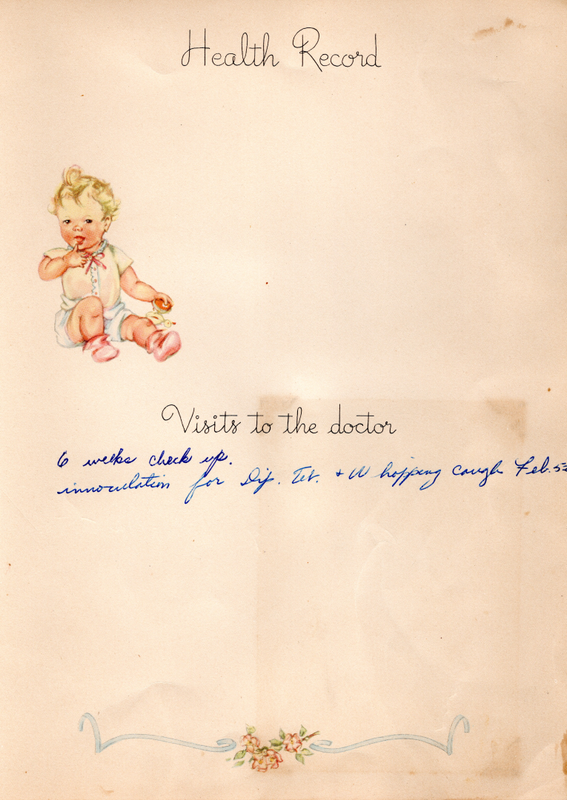 Health Record
Visits to the doctor
6 weeks check up.
innoculation for Dip. Tet. + Whopping cough Feb. 53